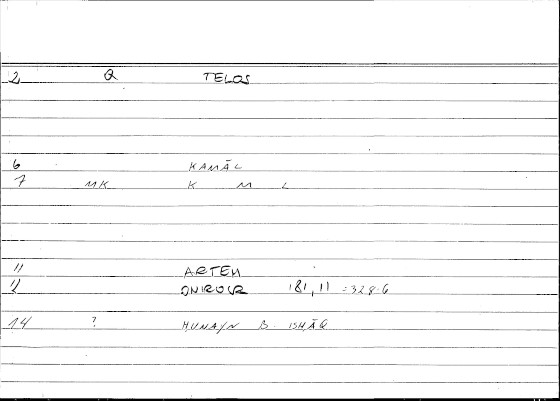 2 Q TELOS
6 KAMĀL
7 MK K M L
11 ARTEM
12 ONIROCR 181,11 =328.6
14 ? ḤUNAYN B. ISḤĀQ